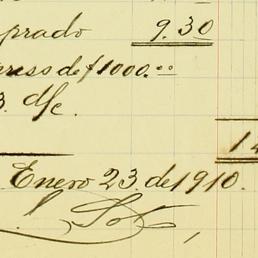 prado 9.30
de $1000.00
3. d/c.
1
Enero 23. de 1910.